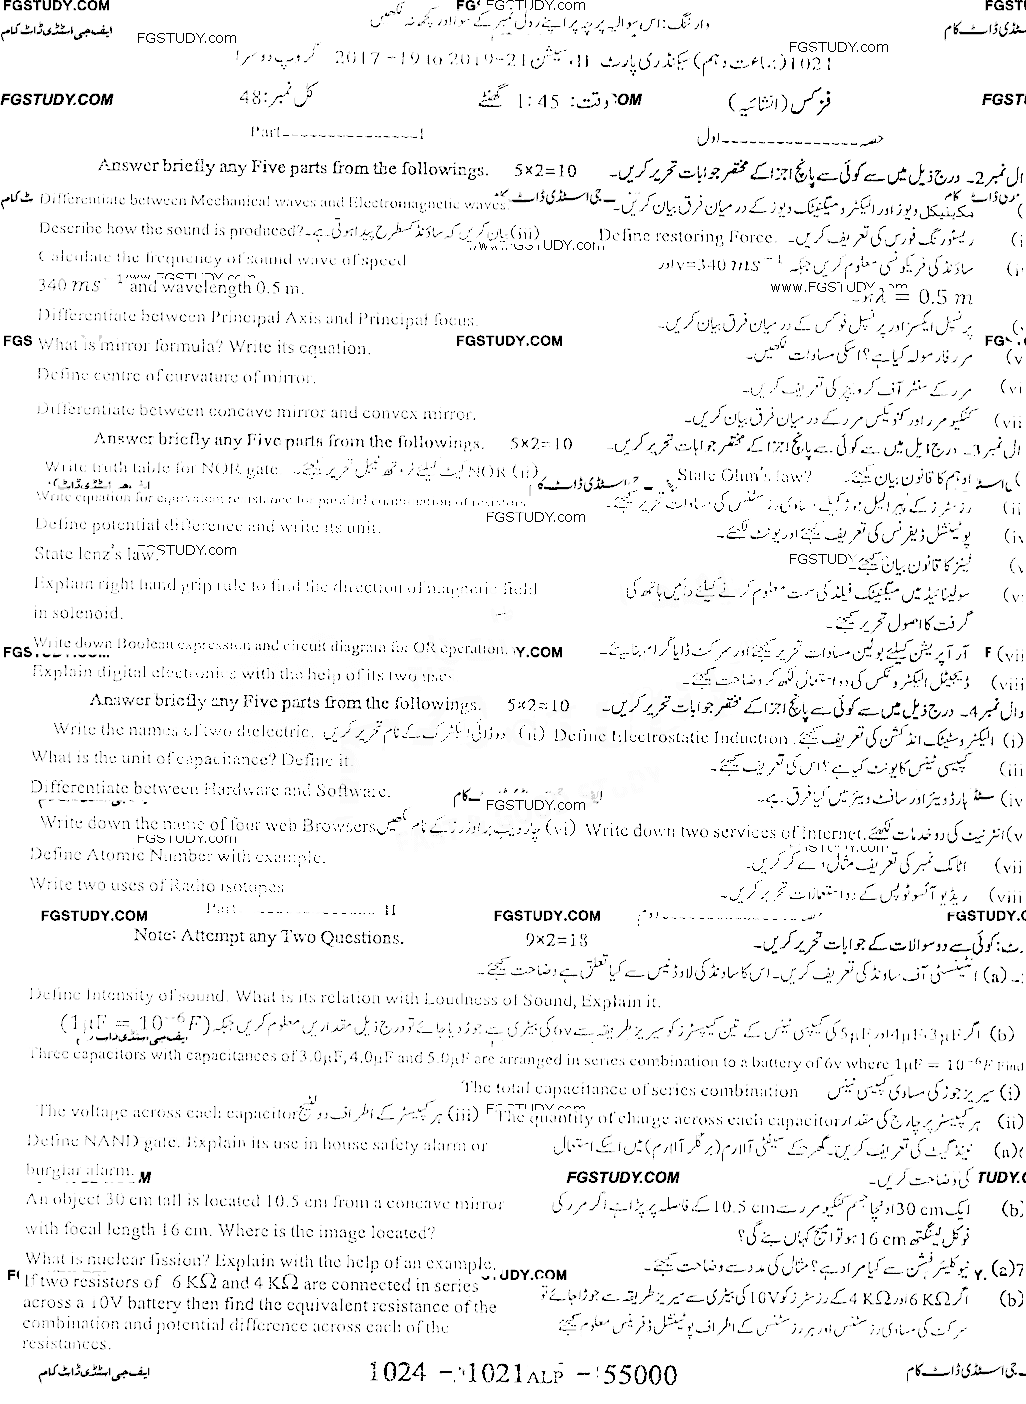 FGSTUDY.COM FGSTUDY.com
ایف جی اسٹڈی ڈاٹ کام FGSTUDY.com وارننگ: اس سوالیہ پرچہ پر اپنے رول نمبر کے سوا اور کچھ نہ لکھیں FGSTUDY.com
1021 (جماعت دہم) سیکنڈری پارٹ II، سیشن 2017-19 to 2019-21 گروپ دوسرا
FGSTUDY.COM کل نمبر: 48 وقت: 1:45 گھنٹے فزکس (انشائیہ)
Part----------------I حصہ ---------------- اول
Answer briefly any Five parts from the followings. 5×2=10 درج ذیل میں سے کوئی سے پانچ اجزا کے مختصر جوابات تحریر کریں۔
Differentiate between Mechanical waves and Electromagnetic waves. مکینیکل ویوز اور الیکٹرومیگنیٹک ویوز کے درمیان فرق بیان کریں۔
Describe how the sound is produced? بیان کریں کہ ساؤنڈ کسطرح پیدا ہوتی ہے۔ (iii) Define restoring Force. ریسٹورنگ فورس کی تعریف کریں۔
www.FGSTUDY.com
Calculate the frequency of sound wave of speed ساؤنڈ کی فریکوئنسی معلوم کریں جبکہ v=340 ms⁻¹ اور
340 ms⁻¹ and wavelength 0.5 m. www.FGSTUDY.com λ = 0.5 m
Differentiate between Principal Axis and Principal focus. پرنسپل ایکسز اور پرنسپل فوکس کے درمیان فرق بیان کریں۔
What is mirror formula? Write its equation. FGSTUDY.COM مرر فارمولہ کیا ہے؟ اسکی مساوات لکھیں۔
Define centre of curvature of mirror. مرر کے سنٹر آف کرویچر کی تعریف کریں۔
Differentiate between concave mirror and convex mirror. کنکیو مرر اور کنویکس مرر کے درمیان فرق بیان کریں۔ (vii
Answer briefly any Five parts from the followings. 5×2=10 درج ذیل میں سے کوئی سے پانچ اجزا کے مختصر جوابات تحریر کریں۔
Write truth table for NOR gate. NOR گیٹ کیلئے ٹروتھ ٹیبل تحریر کیجئے۔ (ii) State Ohm's law? اوہم کا قانون بیان کیجئے۔
Write equation for equivalent resistance for parallel combination of resistors.
FGSTUDY.com
Define potential difference and write its unit. پوٹینشل ڈیفرنس کی تعریف کیجئے اور یونٹ لکھئے۔
State lenz's law. FGSTUDY.com لینز کا قانون بیان کیجئے۔
Explain right hand grip rule to find the direction of magnetic field سولینائیڈ میں میگنیٹک فیلڈ کی سمت معلوم کرنے کیلئے دائیں ہاتھ کی
in solenoid. گرفت کا اصول تحریر کیجئے۔
Write down Boolean expression and circuit diagram for OR operation. آر آپریشن کیلئے بولین مساوات تحریر کیجئے اور سرکٹ ڈایاگرام بنائیے۔ (vii
Explain digital electronics with the help of its two uses ڈیجیٹل الیکٹرونکس کی دو استعمال لکھ کر وضاحت کیجئے۔ (viii
Answer briefly any Five parts from the followings. 5×2=10 درج ذیل میں سے کوئی سے پانچ اجزا کے مختصر جوابات تحریر کریں۔
Write the names of two dielectric. دو ڈائی الیکٹرک کے نام تحریر کریں۔ (ii) Define Electrostatic Induction. الیکٹروسٹیٹک انڈکشن کی تعریف کیجئے۔ (i)
What is the unit of capacitance? Define it. کپیسی ٹینس کا یونٹ کیا ہے؟ اس کی تعریف کیجئے۔ (iii
Differentiate between Hardware and Software. FGSTUDY.com ہارڈ ویئر اور سافٹ ویئر میں کیا فرق ہے۔ (iv
Write down the name of four web Browsers چار ویب براؤزرز کے نام لکھیں (vi) Write down two services of Internet. انٹرنیٹ کی دو خدمات لکھئے۔
FGSTUDY.com
Define Atomic Number with example. اٹامک نمبر کی تعریف مثال دے کر کریں۔ (vii
Write two uses of Radio isotopes ریڈیو آئسوٹوپس کے دو استعمالات تحریر کریں۔ (viii
FGSTUDY.COM Part ---------------- II FGSTUDY.COM
Note: Attempt any Two Questions. 9×2=18 کوئی سے دو سوالات کے جوابات تحریر کریں۔
(a) انٹینسٹی آف ساؤنڈ کی تعریف کریں۔ اس کا ساؤنڈ کی لاؤڈنیس سے کیا تعلق ہے وضاحت کیجئے۔
Define Intensity of sound. What is its relation with Loudness of Sound, Explain it.
(b) اگر 3μF، 4μF اور 5μF کی کپیسی ٹینس کے تین کپیسٹرز کو سیریز طریقہ سے 6v کی بیٹری سے جوڑ دیا جائے تو درج ذیل مقداریں معلوم کریں جبکہ (1μF = 10⁻⁶F)
Three capacitors with capacitances of 3.0μF, 4.0μF and 5.0μF are arranged in series combination to a battery of 6v where 1μF = 10⁻⁶F Find
The total capacitance of series combination سیریز جوڑ کی مساوی کپیسی ٹینس (i)
The voltage across each capacitor ہر کپیسٹر کے اطراف وولٹیج (iii) The quantity of charge across each capacitor ہر کپیسٹر پر چارج کی مقدار (ii)
Define NAND gate. Explain its use in house safety alarm or نینڈ گیٹ کی تعریف کریں۔ گھر کے سیفٹی الارم (برگلر آلارم) میں اسکے استعمال (a)
burglar alarm. FGSTUDY.COM کی وضاحت کریں۔
An object 30 cm tall is located 10.5 cm from a concave mirror ایک 30 cm اونچا جسم کنکیو مرر سے 10.5 cm کے فاصلہ پر پڑا ہے اگر مرر کی (b)
with focal length 16 cm. Where is the image located? فوکل لینگتھ 16 cm ہو تو امیج کہاں بنے گی؟
What is nuclear fission? Explain with the help of an example. نیوکلیئر فشن سے کیا مراد ہے؟ مثال کی مدد سے وضاحت کیجئے۔ (a)
If two resistors of 6 KΩ and 4 KΩ are connected in series اگر 6 KΩ اور 4 KΩ کے رزسٹرز کو 10V کی بیٹری سے سیریز طریقہ سے جوڑا جائے تو (b)
across a 10V battery then find the equivalent resistance of the
combination and potential difference across each of the سرکٹ کی مساوی رزسٹنس اور ہر رزسٹنس کے اطراف پوٹینشل ڈفرینس معلوم کیجئے
resistances.
ایف جی اسٹڈی ڈاٹ کام 1024 - 1021 ALP - 55000